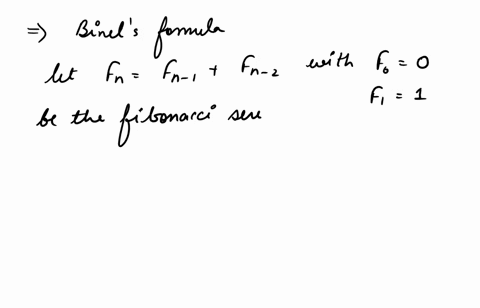 ⇒ Binel's formula
let Fn = Fn-1 + Fn-2 with F0 = 0
F1 = 1
be the fibonacci ser